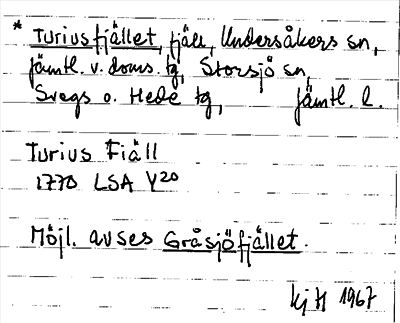 * Turiusfjället, fjäll, Undersåkers sn,
Jämtl. v. doms. tg, Storsjö sn,
Svegs o. Hede tg, Jämtl. l.
Turius Fiäll
1770 LSA Y20
Möjl. avses Gråsjöfjället.
1967